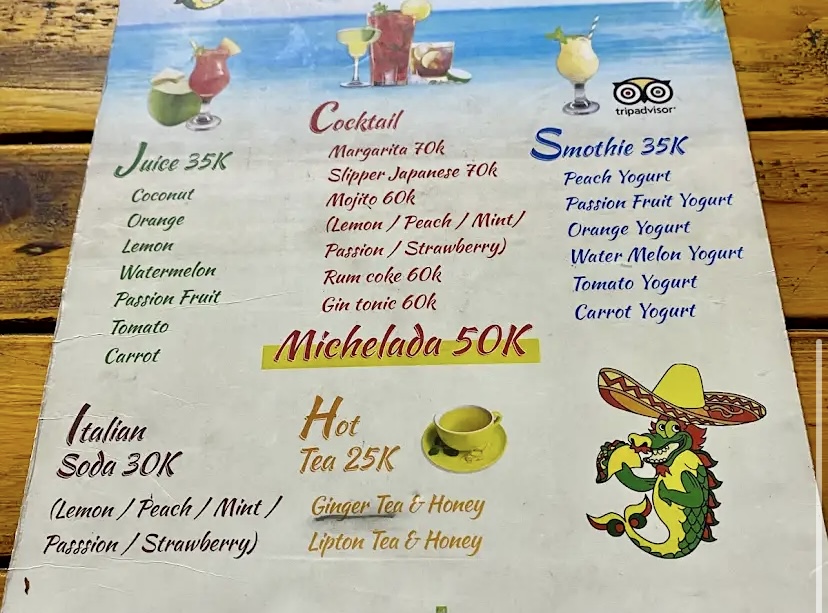 tripadvisor
Juice 35K
Coconut
Orange
Lemon
Watermelon
Passion Fruit
Tomato
Carrot
Cocktail
Margarita 70k
Slipper Japanese 70k
Mojito 60k
(Lemon / Peach / Mint/
Passion / Strawberry)
Rum coke 60k
Gin tonic 60k
Smothie 35K
Peach Yogurt
Passion Fruit Yogurt
Orange Yogurt
Water Melon Yogurt
Tomato Yogurt
Carrot Yogurt
Michelada 50K
Italian
Soda 30K
(Lemon / Peach / Mint /
Passsion / Strawberry)
Hot
Tea 25K
Ginger Tea & Honey
Lipton Tea & Honey